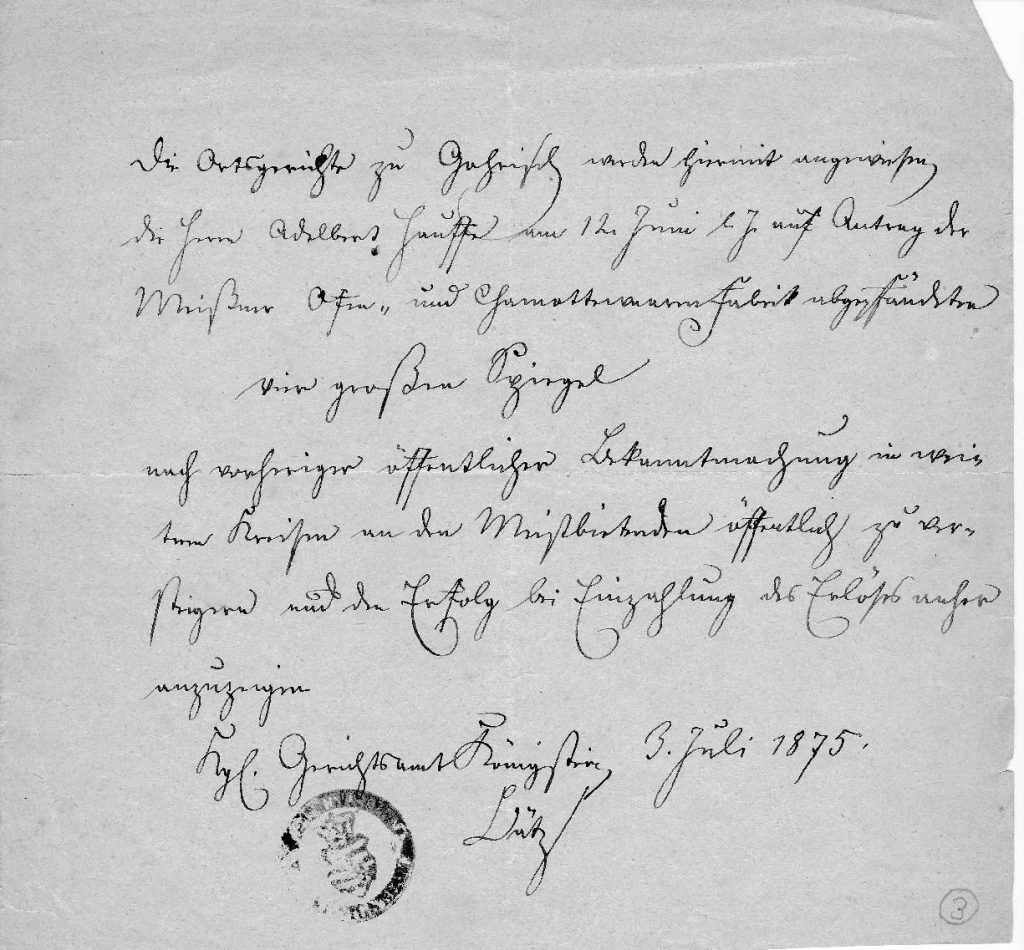 Die Ortsgerichte zu Gohrisch werden hiermit angewiesen
die Herrn Adelbert Hauffe am 12. Juni l. J. auf Antrag der
Meißner Ofen- und Chamottewaaren Fabrik abgepfändeten
vier großen Spiegel
nach vorheriger öffentlicher Bekanntmachung in wei-
tern Kreisen an den Meistbietenden öffentlich zu ver-
steigern und den Erfolg bei Einzahlung des Erlöses anher
anzuzeigen
Kgl. Gerichtsamt Königstein, 3. Juli 1875.
3